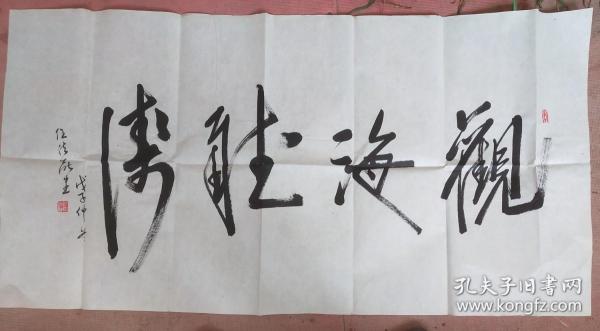 觀海聽濤
戊子仲冬
孔夫子旧书网
www.kongfz.com